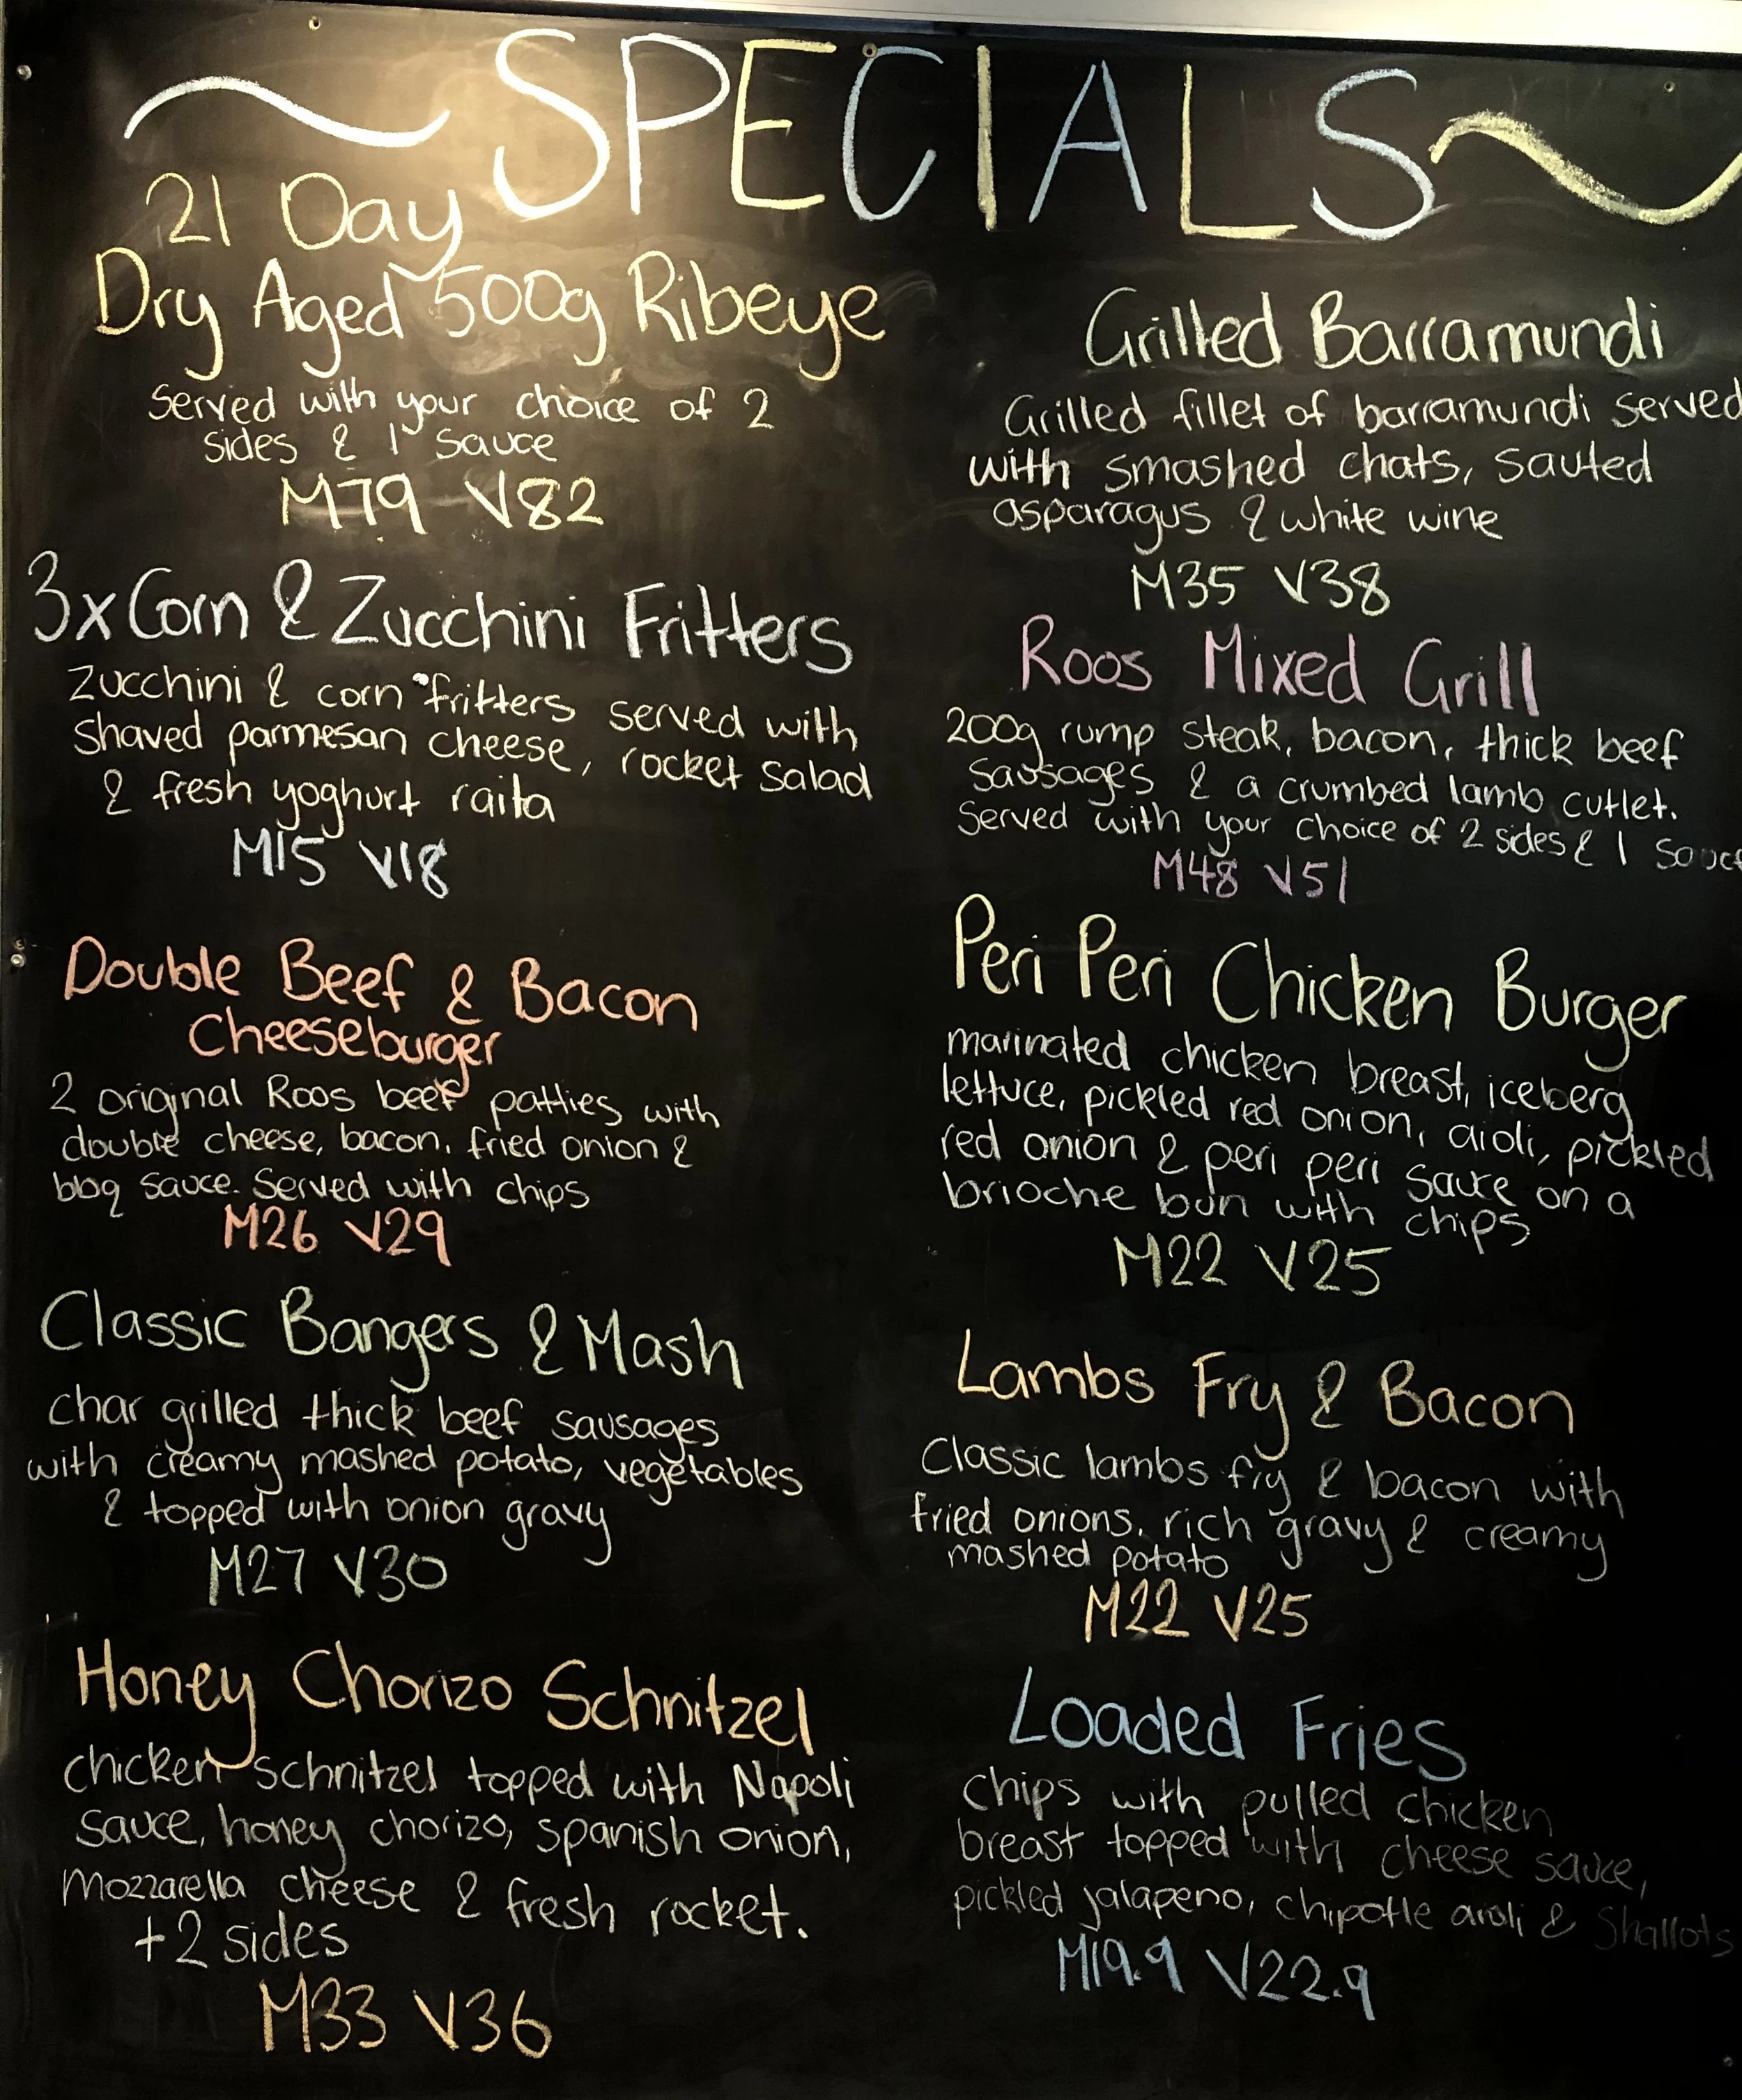 ~SPECIALS~
21 Day
Dry Aged 500g Ribeye
Served with your choice of 2
sides & 1 sauce
M79 V82
3x Corn & Zucchini Fritters
Zucchini & corn fritters served with
shaved parmesan cheese, rocket salad
& fresh yoghurt raita
M15 V18
Double Beef & Bacon
Cheeseburger
2 original Roos beef patties with
double cheese, bacon, fried onion &
bbq sauce. Served with chips
M26 V29
Classic Bangers & Mash
char grilled thick beef sausages
with creamy mashed potato, vegetables
& topped with onion gravy
M27 V30
Honey Chorizo Schnitzel
chicken schnitzel topped with Napoli
sauce, honey chorizo, spanish onion,
mozzarella cheese & fresh rocket.
+2 sides
M33 V36
Grilled Barramundi
Grilled fillet of barramundi served
with smashed chats, sauted
asparagus & white wine
M35 V38
Roos Mixed Grill
200g rump steak, bacon, thick beef
sausages & a crumbed lamb cutlet.
Served with your choice of 2 sides & 1 sauce
M48 V51
Peri Peri Chicken Burger
marinated chicken breast, iceberg
lettuce, pickled red onion, aioli, pickled
red onion & peri peri sauce on a
brioche bun with chips
M22 V25
Lambs Fry & Bacon
Classic lambs fry & bacon with
fried onions, rich gravy & creamy
mashed potato
M22 V25
Loaded Fries
Chips with pulled chicken
breast topped with cheese sauce,
pickled jalapeno, chipotle aioli & Shallots
M19.9 V22.9